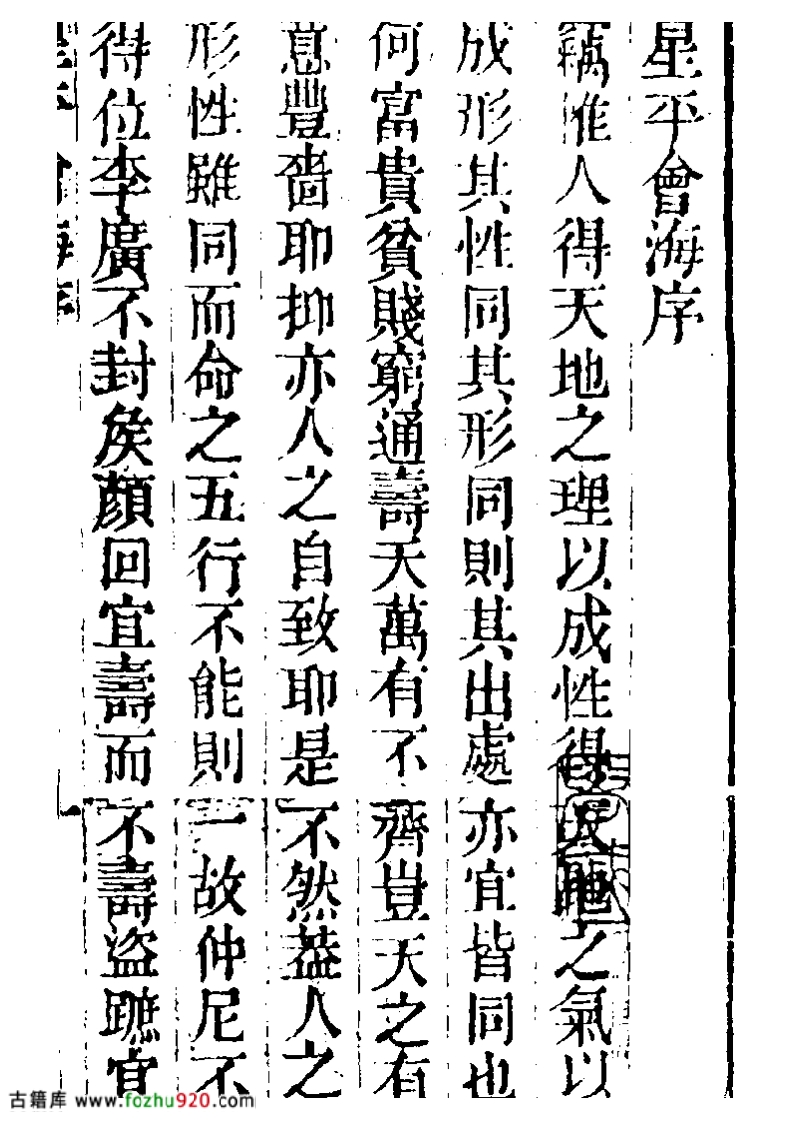 星平會海序
竊惟人得天地之理以成性得天地之氣以
成形其性同其形同則其出處亦宜皆同也
何富貴貧賤窮通壽夭萬有不齊豈天之有
意豐嗇耶抑亦人之自致耶是不然葢人之
形性雖同而命之五行不能則一故仲尼不
得位李廣不封矦顏回宜壽而不壽盜蹠宜
星平會海序 一
古籍库 www.fozhu920.com